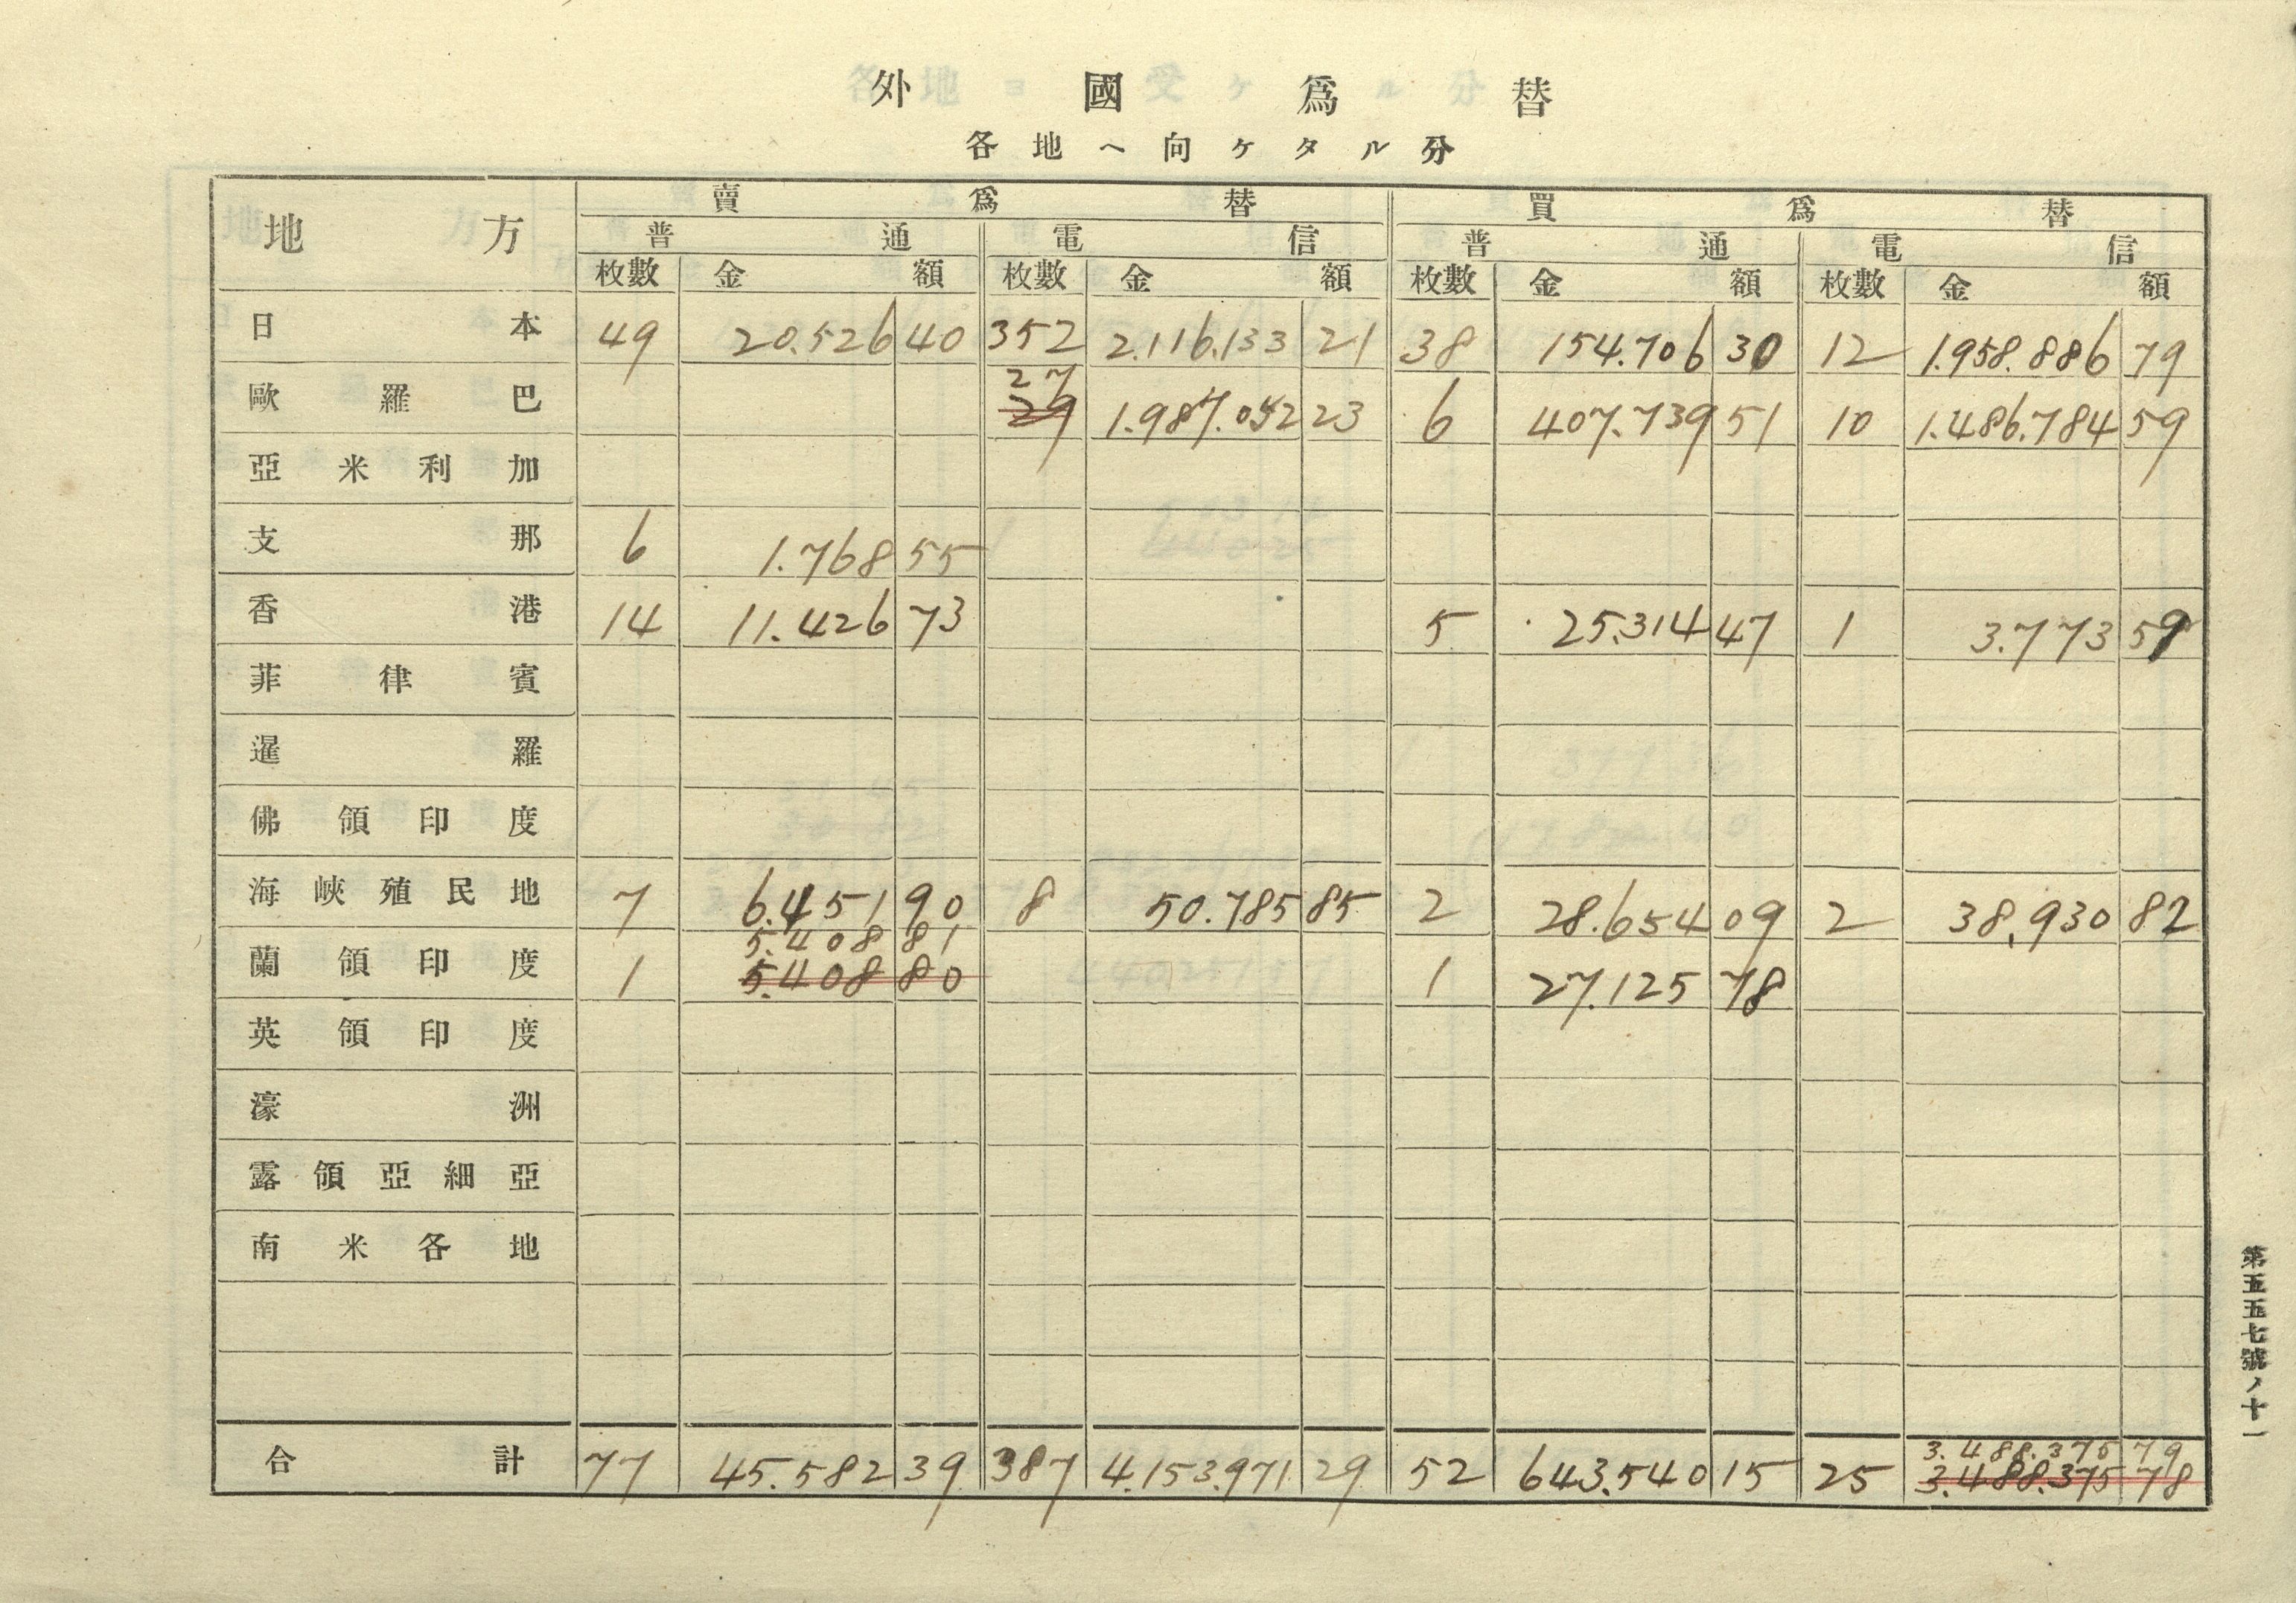 外國爲替
各地ヘ向ケタル分
地方 賣爲替 買爲替
普通 電信 普通 電信
枚數 金額 枚數 金額 枚數 金額 枚數 金額
日本 49 20.526 40 352 2.116.133 21 38 154.706 30 12 1.958.886 79
27
歐羅巴 29 1.987.052 23 6 407.739 51 10 1.486.784 59
亞米利加
支那 6 1.768 55
香港 14 11.426 73 5 25.314 47 1 3.773 59
菲律賓
暹羅
佛領印度
海峽殖民地 7 6.451 90 8 50.785 85 2 28.654 09 2 38,930 82
5.408 81
蘭領印度 1 5.408 80 1 27.125 78
英領印度
濠洲
露領亞細亞
南米各地
3.488.375 79
合計 77 45.582 39 387 4.153.971 29 52 643.540 15 25 3.488.375 78
第五五七號ノ十一